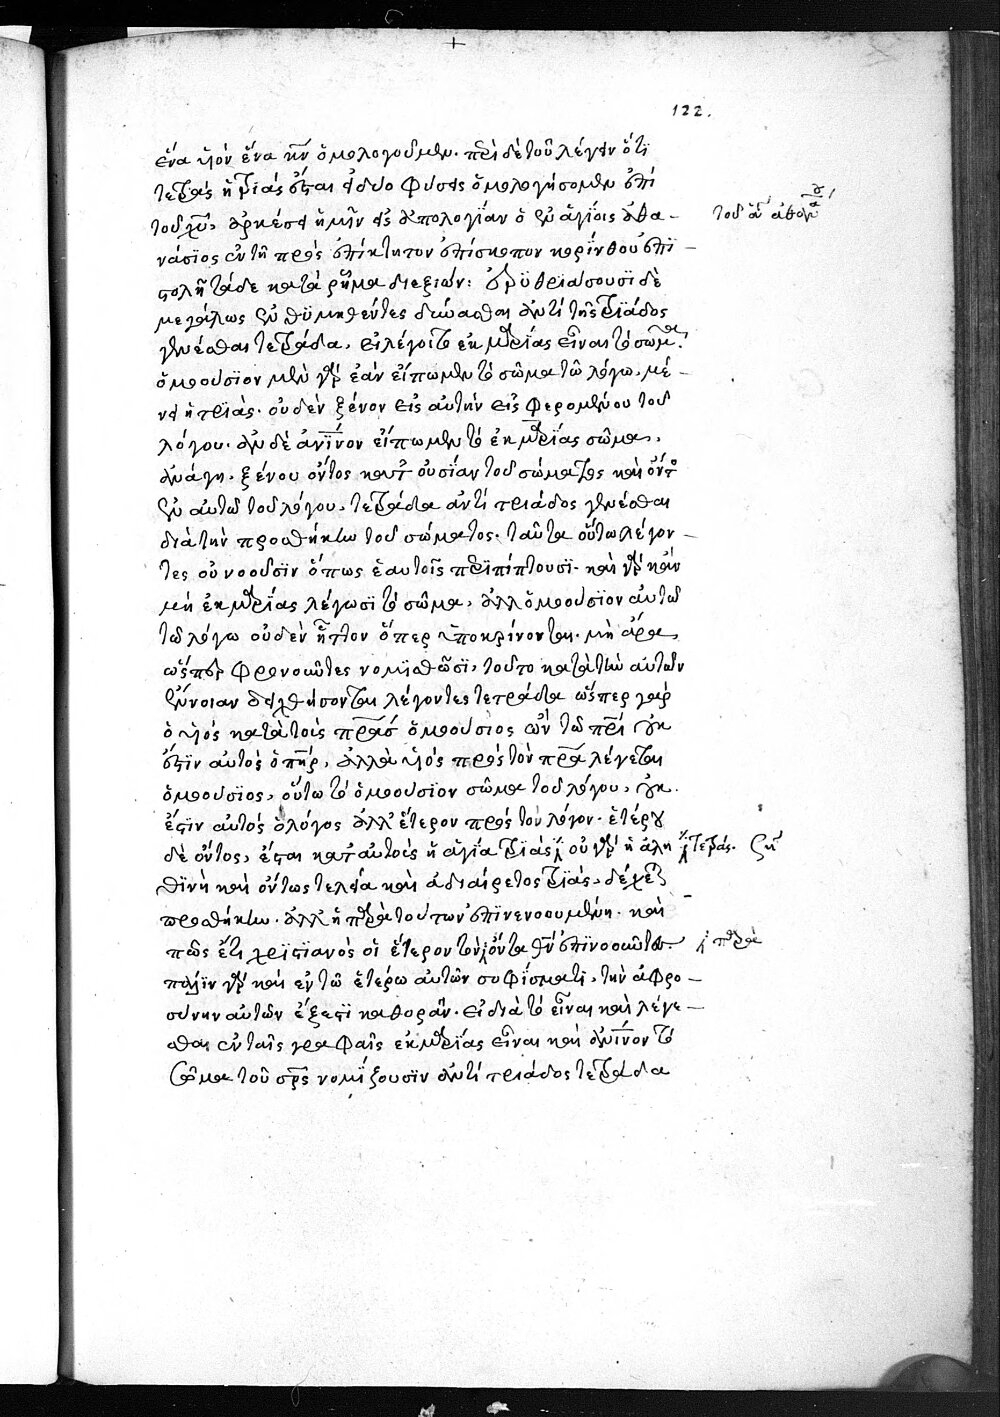 122.
ἕνα υἱὸν ἕνα κν ὁμολογοῦμεν. περὶ δὲ τοῦ λέγειν ὅτι
τετρὰς ἡ τριὰς ἔσται εἰ δύο φύσεις ὁμολογήσομεν ἐπὶ
τοῦ χυ, ἀρκέσει ἡμῖν εἰς ἀπολογίαν ὁ ἐν ἁγίοις ἀθα-
τοῦ ἁγ ἀθαν
νάσιος ἐν τῇ πρὸς ἐπίκτητον ἐπίσκοπον κορίνθου ἐπι-
στολῇ τάδε κατὰ ῥῆμα διεξιών: ἐρυθριάσουσι δὲ
μεγάλως οἱ ἐνθυμηθέντες δύνασθαι ἀντὶ τῆς τριάδος
γενέσθαι τετράδα, εἰ λέγοιτο ἐκ μρίας εἶναι τὸ σῶμα.
ὁμοούσιον μὲν γὰρ ἐὰν εἴπωμεν τὸ σῶμα τῶ λόγω, μέ-
νει ἡ τριάς. οὐδὲν ξένον εἰς αὐτὴν εἰσφερομένου τοῦ
λόγου. ἐὰν δὲ ἀνινον εἴπωμεν τὸ ἐκ μρίας σῶμα,
ἀνάγκη, ξένου ὄντος κατ οὐσίαν τοῦ σώματος καὶ ὄντος
ἐν αὐτῶ τοῦ λόγου, τετράδα ἀντὶ τριάδος γενέσθαι
διὰ τὴν προσθήκην τοῦ σώματος. ταῦτα οὕτω λέγον-
τες οὐ νοοῦσιν ὅπως ἑαυτοῖς περιπίπτουσι. καὶ γὰρ κἂν
μὴ ἐκ μρίας λέγωσι τὸ σῶμα, ἀλλ ὁμοούσιον αὐτῶ
τῶ λόγω οὐδὲν ἧττον ὅπερ ὑποκρίνονται. μὴ ἄρα,
ὥσπερ φρονοῦντες νομισθῶσι, τοῦτο κατὰ τὴν αὐτῶν
ἔννοιαν δειχθήσονται λέγοντες τετράδα ὥσπερ γὰρ
ὁ υἱὸς κατὰ τοὺς πρας ὁμοούσιος ὢν τῶ πρι οὐκ
ἔστιν αὐτὸς ὁ πηρ, ἀλλὰ υἱὸς πρὸς τὸν πρα λέγεται
ὁμοούσιος, οὕτω τὸ ὁμοούσιον σῶμα τοῦ λόγου, οὐκ
ἔστιν αὐτὸς ὁ λόγος ἀλλ ἕτερον πρὸς τὸν λόγον. ἑτέρου
δὲ ὄντος, ἔσται κατ αὐτοὺς ἡ ἁγία τριὰς οὐ γὰρ ἡ ἀλη
τετράς.
θινὴ καὶ ὄντως τελεία καὶ ἀδιαίρετος τριὰς, δέχεται
προσθήκην. ἀλλ ἡ παρὰ τούτων ἐπινενοουμένη. καὶ
πῶς ἔτι χριστιανὸς οἱ ἕτερον τὸν ὄντα θν ἐπινοοῦντες
παρὰ
πάλιν γὰρ καὶ ἐν τῶ ἑτέρω αὐτῶν σοφίσματι, τὴν ἀφρο-
σύνην αὐτῶν ἔξεστι καθορᾶν. εἰ διὰ τὸ εἶναι καὶ λέγε-
σθαι ἐν ταῖς γραφαῖς ἐκ μρίας εἶναι καὶ ἀνινον τὸ
σῶμα τοῦ σρς νομίζουσιν ἀντὶ τριάδος τετράδα